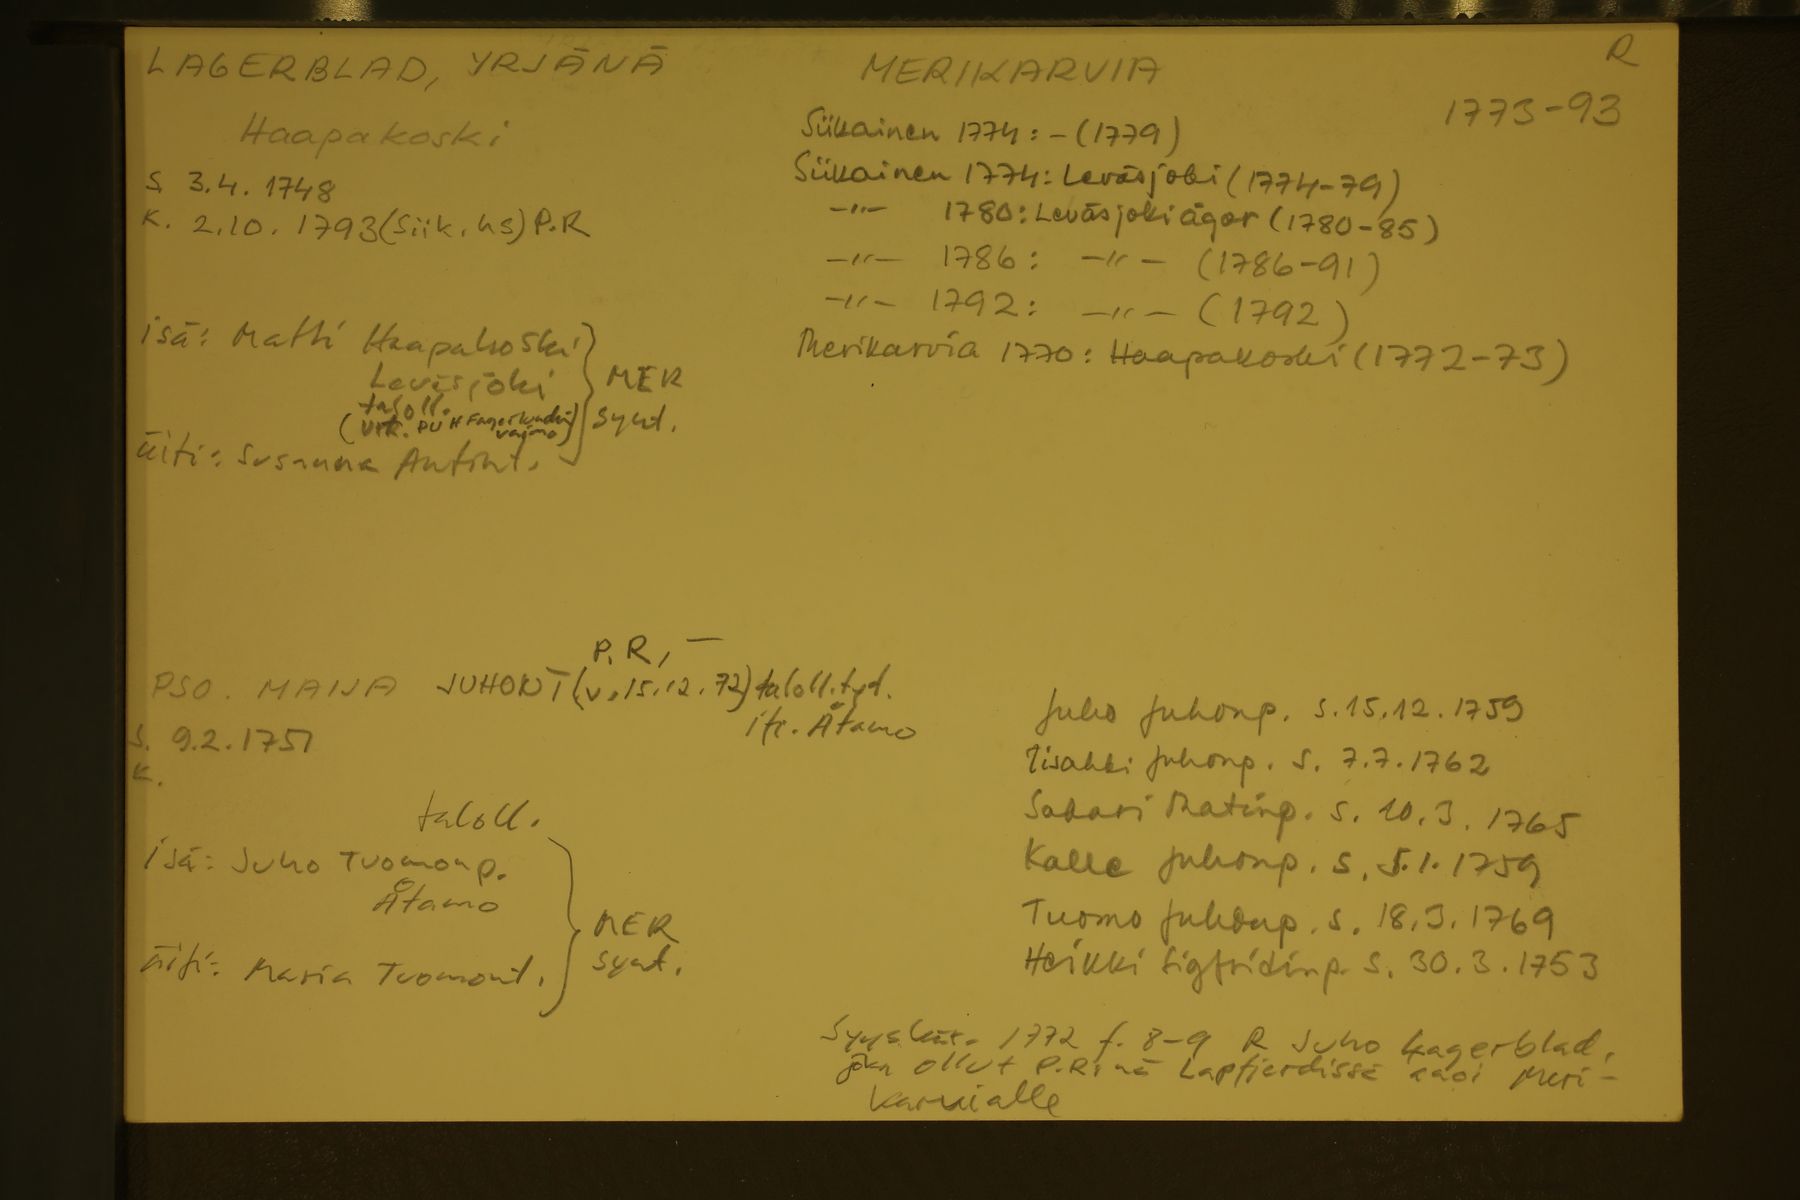 LAGERBLAD, YRJÄNÄ
Haapakoski
S 3.4. 1748
K. 2.10. 1793 (Siik. hs) P.R
isä: Matti Haapakoski
Leväsjoki
taloll.
(virk. PU H Fagerlundin vaimo)
äiti: Susanna Antint.
MER
synt.
MERIKARVIA
R
1773-93
Siikainen 1774: - (1779)
Siikainen 1774: Leväsjoki (1774-79)
-"- 1780: Leväsjoki ägor (1780-85)
-"- 1786: -"- (1786-91)
-"- 1792: -"- (1792)
Merikarvia 1770: Haapakoski (1772-73)
P.R, -
PSO. MAIJA JUHONT (v. 15.12.72) taloll. tyt.
its. Åtamo
S. 9.2.1751
K.
taloll.
isä: Juho Tuomonp.
Åtamo
äiti: Maria Tuomont.
MER
synt.
Juho Juhonp. s. 15.12.1759
Iisakki Juhonp. s. 7.7.1762
Sakari Matinp. s. 10.3.1765
Kalle Juhonp. s. 5.1.1759
Tuomo Juhonp. s. 18.3.1769
Heikki Sigfridinp. s. 30.3.1753
Syysk. 1772 f. 8-9 R Juho Lagerblad,
joka ollut P.R:nä Lapfierdissä Meri-
karvialle